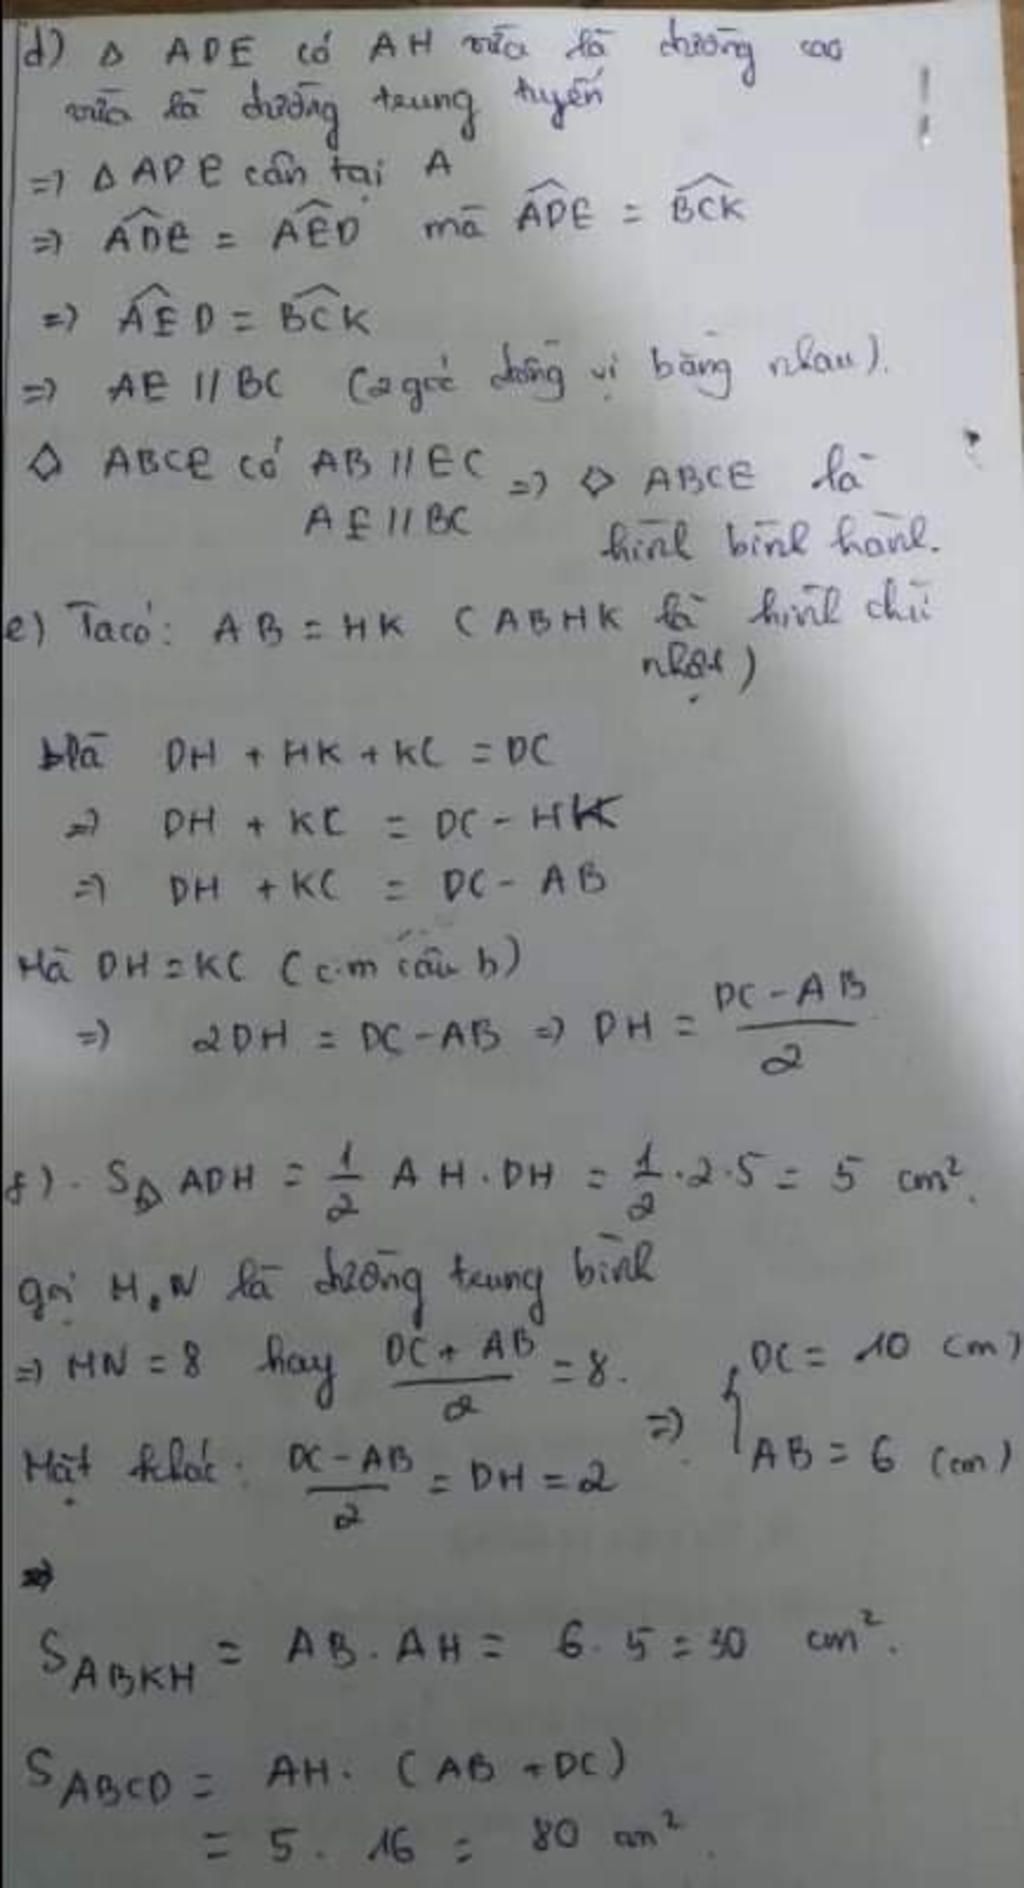 d) Δ ADE có AH vừa là đường cao
vừa là đường trung tuyến
=> Δ ADE cân tại A
=> \widehat{ADE} = \widehat{AED} mà \widehat{ADE} = \widehat{BCK}
=> \widehat{AED} = \widehat{BCK}
=> AE // BC (2 góc đồng vị bằng nhau).
◇ ABCE có AB // EC => ◇ ABCE là
AE // BC hình bình hành.
e) Ta có: AB = HK (ABHK là hình chữ
nhật)
Mà DH + HK + KC = DC
=> DH + KC = DC - HK
=> DH + KC = DC - AB
Mà DH = KC (c.m câu b)
=> 2DH = DC - AB => DH = \frac{DC - AB}{2}
f). S_{Δ ADH} = \frac{1}{2} AH . DH = \frac{1}{2} . 2 . 5 = 5 cm².
gọi M,N là đường trung bình
=> MN = 8 hay \frac{DC + AB}{2} = 8.
Mặt khác: \frac{DC - AB}{2} = DH = 2 => { DC = 10 (cm)
AB = 6 (cm)
=>
S_{ABKH} = AB . AH = 6 . 5 = 30 cm².
S_{ABCD} = AH . (AB + DC)
= 5 . 16 = 80 cm².